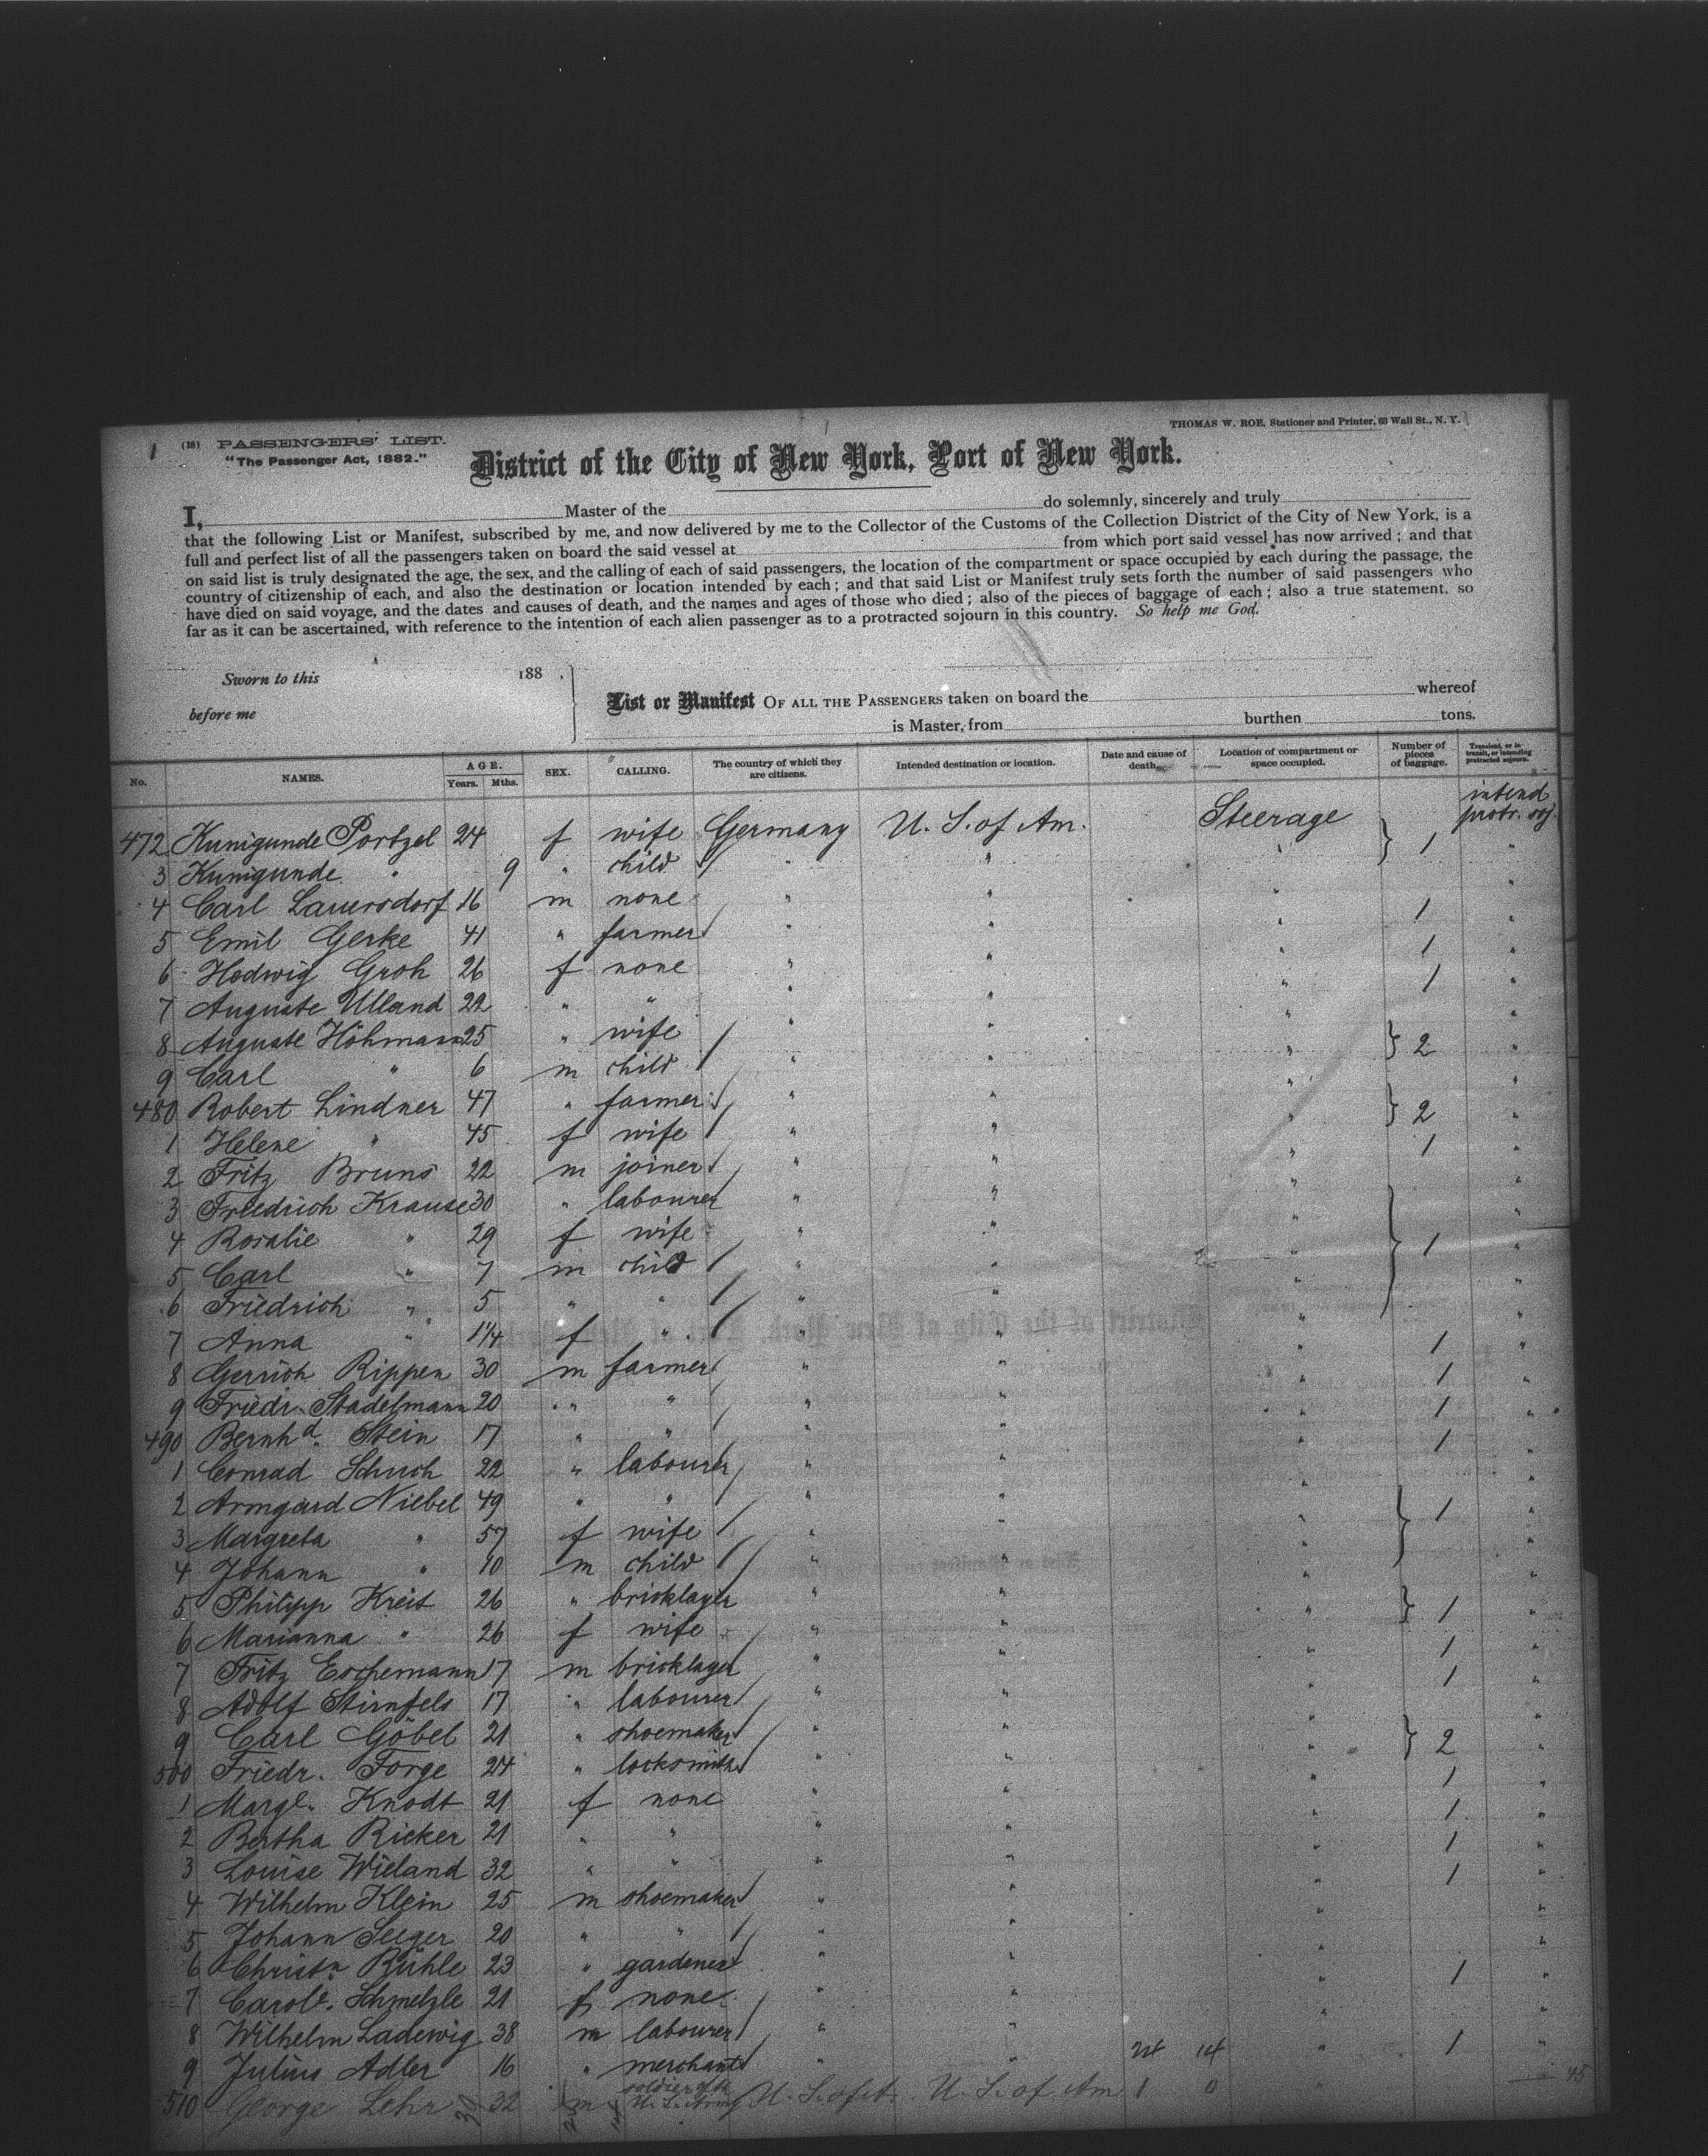 1 (18) PASSENGERS' LIST.
"The Passenger Act, 1882."
THOMAS W. ROE, Stationer and Printer, 63 Wall St., N. Y.
District of the City of New York, Port of New York.
I, Master of the do solemnly, sincerely and truly
that the following List or Manifest, subscribed by me, and now delivered by me to the Collector of the Customs of the Collection District of the City of New York, is a
full and perfect list of all the passengers taken on board the said vessel at from which port said vessel has now arrived; and that
on said list is truly designated the age, the sex, and the calling of each of said passengers, the location of the compartment or space occupied by each during the passage, the
country of citizenship of each, and also the destination or location intended by each; and that said List or Manifest truly sets forth the number of said passengers who
have died on said voyage, and the dates and causes of death, and the names and ages of those who died; also of the pieces of baggage of each; also a true statement, so
far as it can be ascertained, with reference to the intention of each alien passenger as to a protracted sojourn in this country. So help me God.
Sworn to this 188 .
before me
List or Manifest OF ALL THE PASSENGERS taken on board the whereof
is Master, from burthen tons.
No. NAMES. AGE. Years. Mths. SEX. CALLING. The country of which they are citizens. Intended destination or location. Date and cause of death. Location of compartment or space occupied. Number of pieces of baggage. Transient, or in transit, or intending protracted sojourn.
472 Kunigunde Portzel 24 f wife Germany U. S. of Am. Steerage } 1 intend protr. soj.
3 Kunigunde " 9 " child " " " "
4 Carl Lauersdorf 16 m none " " " 1 "
5 Emil Gerke 41 " farmer " " " 1 "
6 Hedwig Groh 26 f none " " " 1 "
7 Auguste Ulland 22 " " " " " "
8 Auguste Höhmann 25 " wife " " " } 2 "
9 Carl " 6 m child " " " "
480 Robert Lindner 47 " farmer " " " } 2 "
1 Helene " 45 f wife " " " "
2 Fritz Bruns 22 m joiner " " " 1 "
3 Friedrich Krause 30 " labourer " " " } 1 "
4 Rosalie " 29 f wife " " " "
5 Carl " 7 m child " " " "
6 Friedrich " 5 " " " " " "
7 Anna " 1 1/4 f " " " " "
8 Gerrich Rippen 30 m farmer " " " 1 "
9 Friedr. Stadelmann 20 " " " " " 1 "
490 Bernhd. Stein 17 " " " " " 1 "
1 Conrad Schuch 22 " labourer " " " 1 "
2 Armgard Niebel 49 " " " " " } 1 "
3 Margreta " 57 f wife " " " "
4 Johann " 10 m child " " " "
5 Philipp Kreit 26 " bricklayer " " " } 1 "
6 Marianna " 26 f wife " " " "
7 Fritz Eschemann 17 m bricklayer " " " 1 "
8 Adolf Stirnfels 17 " labourer " " " 1 "
9 Carl Göbel 21 " shoemaker " " " } 2 "
500 Friedr. Forge 24 " locksmith " " " "
1 Margl. Knodt 21 f none " " " 1 "
2 Bertha Rieker 21 " " " " " 1 "
3 Louise Wieland 32 " " " " " 1 "
4 Wilhelm Klein 25 m shoemaker " " " 1 "
5 Johann Seeger 20 " " " " " "
6 Christn Rühle 23 " gardener " " " "
7 Carole. Schmelzle 21 f none " " " 1 "
8 Wilhelm Ladewig 38 m labourer " " " "
9 Julius Adler 16 " merchant " " 24 14 " 1 "
510 George Lehr 32 m soldier of the U. S. Army U. S. of A. U. S. of Am 1 0 45